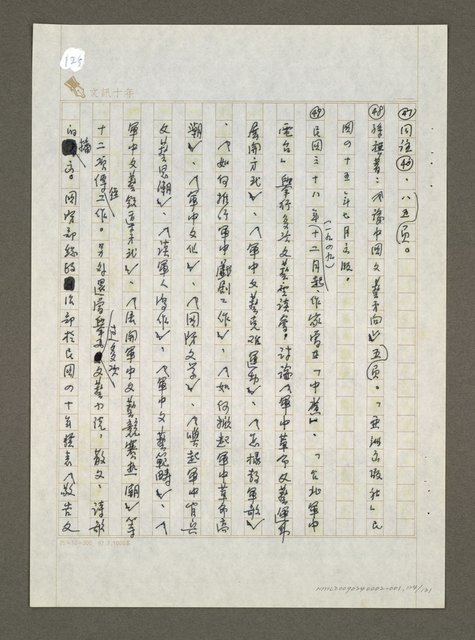 125
文訊十年
㊼同註㊻,八五頁。
㊽孫旗著:《論中國文藝方向》五頁。「亞洲出版社」民
國四十五年七月出版。
㊾民國三十八年(一九四九)十二月起,作家曾在「中廣」、「台北軍中
電台」舉行多次文藝座談會。討論《軍中革命文藝運
展開方式》、《軍中文藝克難運動》、《怎樣教軍歌》
、《如何推行軍中戲劇工作》、《如何掀起軍中革命高
潮》、《軍中文化》、《國際文學》、《喚起軍中官兵
文藝思潮》、《談軍人寫作》、《軍中文藝範疇》、《
軍中文藝教育方式》、《展開軍中文藝競賽熱潮》等
十二項傳播工作。另外還曾舉辦過多次文藝 ,散文、詩歌
的 。國防部總政治部於民國四十年發表《敬告文